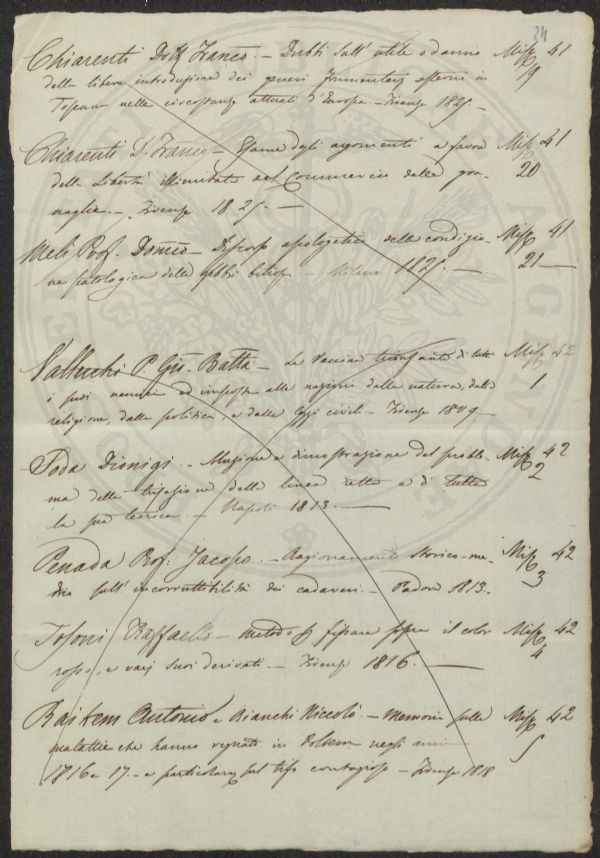 24
Chiarenti Dott. Franco. — Dubbi sull' utile o danno Misc. 41
della libera introduzione dei generi frumentarj esteri in 19
Toscana nelle circostanze attuali d'Europa — Firenze 1825. —
Chiarenti D. Franco — Esame degli argomenti a favore Misc. 41
della Libertà illimitata del Commercio delle gra- 20
naglie. — Firenze 1825. —
Meli Prof. Domco — Discorso apologetico della condizio- Misc. 41
ne patologica delle febbri biliose — Milano 1825. — 21 —
Vallecchi P. Gio. Batta — La Vaccina trionfante di tutti Misc. 42
i suoi nemici ed imposta alle nazioni dalla natura, dalla 1
religione, dalla politica, e dalle Leggi civili — Firenze 1809 —
Toda Dionigi. — Soluzione e dimostrazione del proble- Misc. 42
ma della trisezione della linea retta e di tutta 2
la sua teorica. — Napoli 1813. —
Penada Prof. Jacopo. — Ragionamento storico-me- Misc. 42
dico sull' incorruttibilità dei cadaveri. — Padova 1813. 3
Tosoni Raffaello — metodo p fissare sopra il color Misc. 42
rosso, e varj suoi derivati. — Firenze 1816 — 4
Antonio e Bianchi Niccolò. — Memoria sulle Misc. 42
malattie che hanno regnato in negli anni 5
1816 e 17. — e particolarm. sul tifo contagioso — Firenze 1818